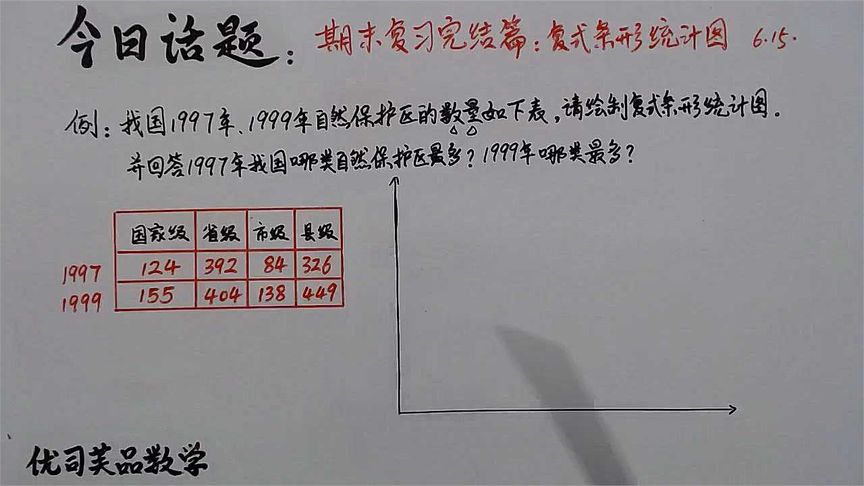 今日话题：期末复习完结篇：复式条形统计图 6.15.
例：我国1997年、1999年自然保护区的数量如下表，请绘制复式条形统计图。
并回答1997年我国哪类自然保护区最多？1999年哪类最多？
国家级 省级 市级 县级
1997 124 392 84 326
1999 155 404 138 449
优司芙品数学